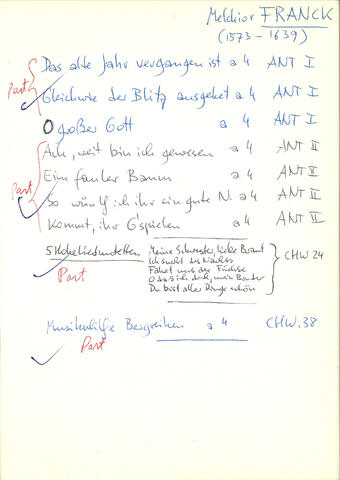 Melchior FRANCK
(1573 - 1639)
Part
Das alte Jahr vergangen ist a 4 ANT I
Gleichwie der Blitz ausgehet a 4 ANT I
O großer Gott a 4 ANT I
Part
Ach, weit bin ich gewesen a 4 ANT II
Ein fauler Baum a 4 ANT II
So wünsch ich ihr ein gute N. a 4 ANT II
Kommt, ihr G'spielen a 4 ANT II
5 Hoheliedmotetten Meine Schwester, liebe Braut
Ich sucht des Nachts
Fahet uns die Füchse
O daß ich dich, mein Bruder
Du bist aller Dinge schön
CHW 24
Part
Musikalische Bergreihen a 4 CHW.38
Part